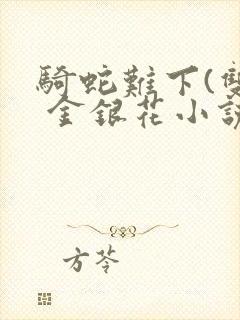 騎蛇難下(雙
金銀花小說
方苓